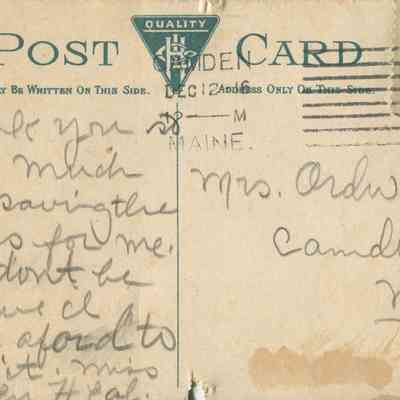 POST CARD
QUALITY
Y BE WRITTEN ON THIS SIDE.
ADDRESS ONLY ON THIS SIDE.
CAMDEN
DEC 12 16
12 — M
MAINE.
you so
much
saving the
s for me.
dont be
aford to
it. Miss
Mrs. Ordw
Camde